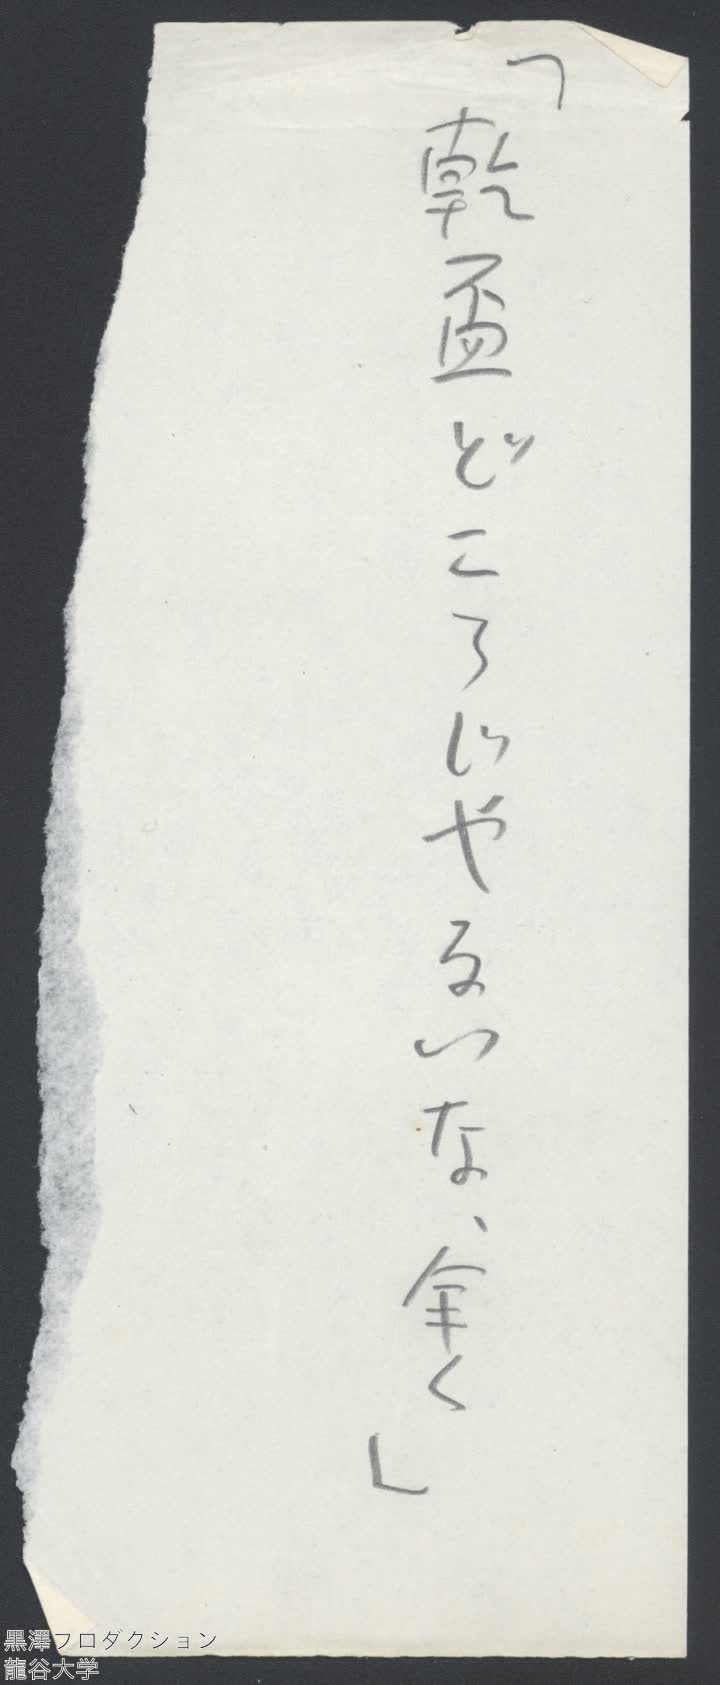 「乾盃どころじやないな、全く」
黒澤プロダクション
龍谷大学